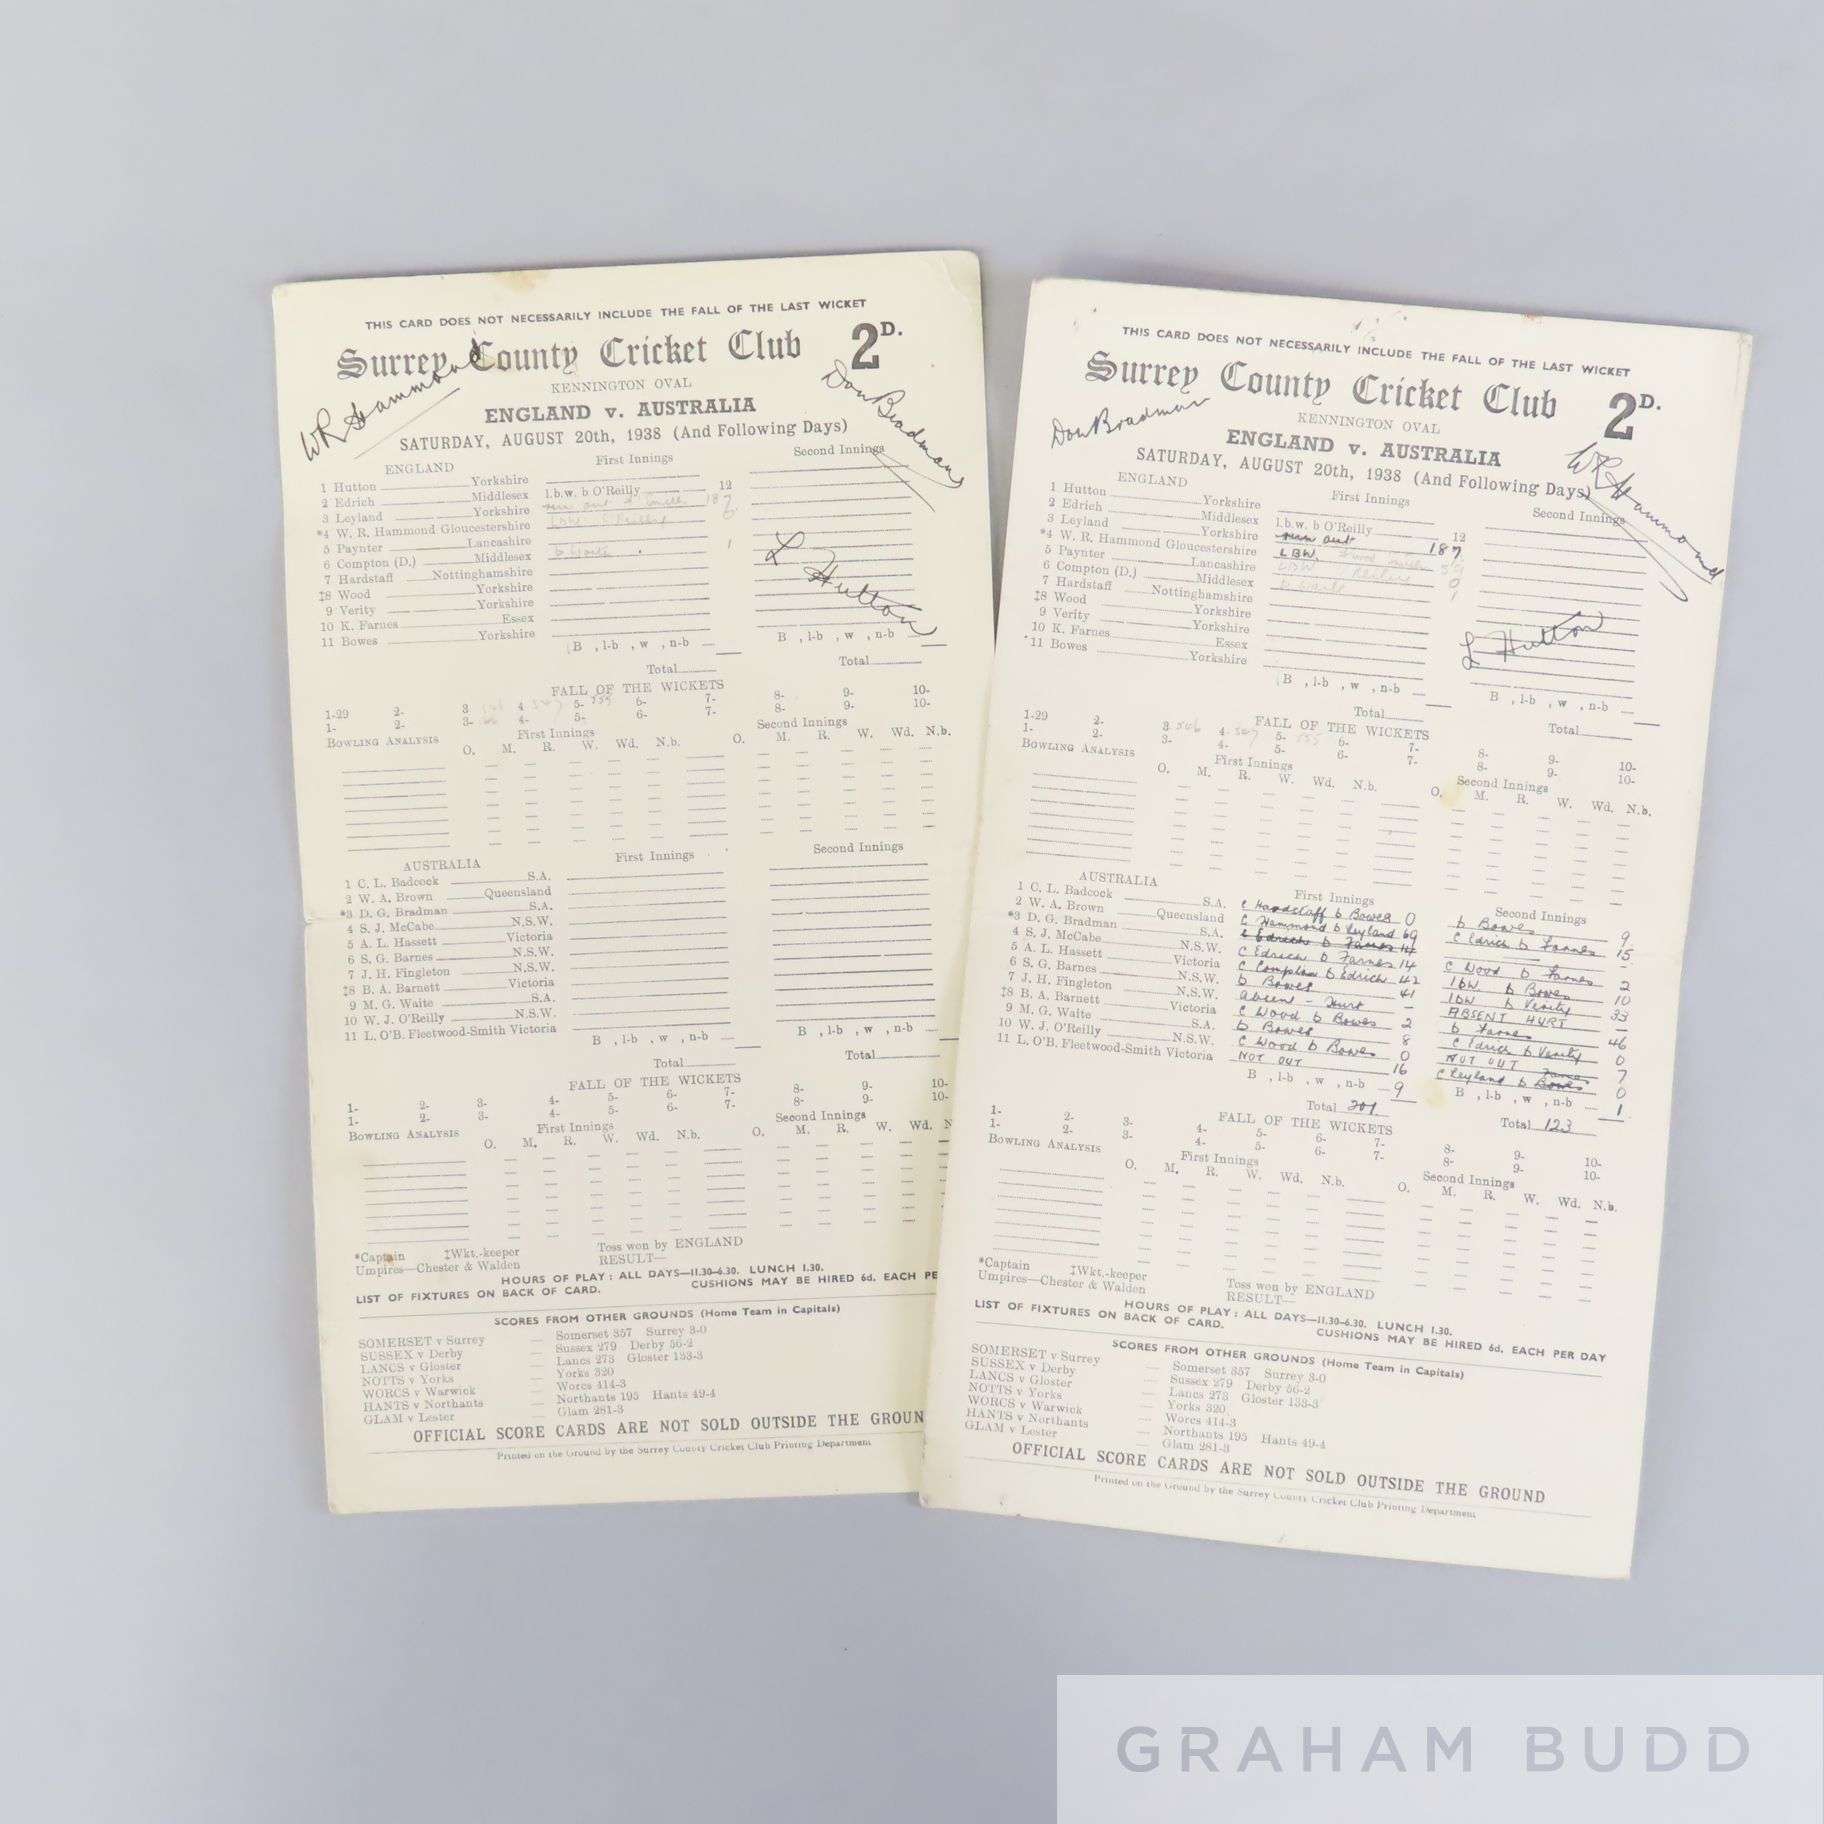 THIS CARD DOES NOT NECESSARILY INCLUDE THE FALL OF THE LAST WICKET
Surrey County Cricket Club 2D.
KENNINGTON OVAL
WR Hammond
Don Bradman
ENGLAND v. AUSTRALIA
SATURDAY, AUGUST 20th, 1938 (And Following Days)
ENGLAND First Innings Second Innings
1 Hutton Yorkshire
2 Edrich Middlesex l.b.w. b O'Reilly 12
3 Leyland Yorkshire run out 187
*4 W. R. Hammond Gloucestershire
5 Paynter Lancashire
6 Compton (D.) Middlesex b Waite 1
7 Hardstaff Nottinghamshire
‡8 Wood Yorkshire
9 Verity Yorkshire
10 K. Farnes Essex
11 Bowes Yorkshire
L Hutton
B , l-b , w , n-b B , l-b , w , n-b
Total Total
FALL OF THE WICKETS
1-29 2- 3 4 547 5- 555 6- 7- 8- 9- 10-
1- 2- 3- 4- 5- 6- 7- 8- 9- 10-
BOWLING ANALYSIS First Innings Second Innings
O. M. R. W. Wd. N.b. O. M. R. W. Wd. N.b.
AUSTRALIA First Innings Second Innings
1 C. L. Badcock S.A.
2 W. A. Brown Queensland
*3 D. G. Bradman S.A.
4 S. J. McCabe N.S.W.
5 A. L. Hassett Victoria
6 S. G. Barnes N.S.W.
7 J. H. Fingleton N.S.W.
‡8 B. A. Barnett Victoria
9 M. G. Waite S.A.
10 W. J. O'Reilly N.S.W.
11 L. O'B. Fleetwood-Smith Victoria
B , l-b , w , n-b B , l-b , w , n-b
Total Total
FALL OF THE WICKETS
1- 2- 3- 4- 5- 6- 7- 8- 9- 10-
1- 2- 3- 4- 5- 6- 7- 8- 9- 10-
BOWLING ANALYSIS First Innings Second Innings
O. M. R. W. Wd. N.b. O. M. R. W. Wd. N
*Captain ‡Wkt.-keeper Toss won by ENGLAND
Umpires—Chester & Walden RESULT—
HOURS OF PLAY : ALL DAYS—11.30-6.30. LUNCH 1.30.
LIST OF FIXTURES ON BACK OF CARD. CUSHIONS MAY BE HIRED 6d. EACH PE
SCORES FROM OTHER GROUNDS (Home Team in Capitals)
SOMERSET v Surrey — Somerset 357 Surrey 3-0
SUSSEX v Derby — Sussex 279 Derby 56-2
LANCS v Gloster — Lancs 273 Gloster 133-3
NOTTS v Yorks — Yorks 320
WORCS v Warwick — Worcs 414-3
HANTS v Northants — Northants 195 Hants 49-4
GLAM v Lester — Glam 281-3
OFFICIAL SCORE CARDS ARE NOT SOLD OUTSIDE THE GROUN
Printed on the Ground by the Surrey County Cricket Club Printing Department
THIS CARD DOES NOT NECESSARILY INCLUDE THE FALL OF THE LAST WICKET
Surrey County Cricket Club 2D.
KENNINGTON OVAL
Don Bradman
WR Hammond
ENGLAND v. AUSTRALIA
SATURDAY, AUGUST 20th, 1938 (And Following Days)
ENGLAND First Innings Second Innings
1 Hutton Yorkshire
2 Edrich Middlesex l.b.w. b O'Reilly 12
3 Leyland Yorkshire run out 187
*4 W. R. Hammond Gloucestershire LBW
5 Paynter Lancashire 0
6 Compton (D.) Middlesex b Waite 1
7 Hardstaff Nottinghamshire
‡8 Wood Yorkshire
9 Verity Yorkshire
10 K. Farnes Essex
11 Bowes Yorkshire
L Hutton
B , l-b , w , n-b B , l-b , w , n-b
Total Total
FALL OF THE WICKETS
1-29 2- 3 546 4- 547 5- 555 6- 7- 8- 9- 10-
1- 2- 3- 4- 5- 6- 7- 8- 9- 10-
BOWLING ANALYSIS First Innings Second Innings
O. M. R. W. Wd. N.b. O. M. R. W. Wd. N.b.
AUSTRALIA First Innings Second Innings
1 C. L. Badcock S.A. c Hardstaff b Bowes 0 b Bowes 9
2 W. A. Brown Queensland c Hammond b Leyland 69 c Edrich b Farnes 15
*3 D. G. Bradman S.A. c Edrich b Farnes 14 —
4 S. J. McCabe N.S.W. c Edrich b Farnes 14 c Wood b Farnes 2
5 A. L. Hassett Victoria c Compton b Edrich 42 lbw b Bowes 10
6 S. G. Barnes N.S.W. b Bowes 41 lbw b Verity 33
7 J. H. Fingleton N.S.W. absent - hurt — ABSENT HURT —
‡8 B. A. Barnett Victoria c Wood b Bowes 2 b Farnes 46
9 M. G. Waite S.A. b Bowes 8 c Edrich b Verity 0
10 W. J. O'Reilly N.S.W. c Wood b Bowes 0 NOT OUT 7
11 L. O'B. Fleetwood-Smith Victoria NOT OUT 16 c Leyland b Bowes Farnes 0
B , l-b , w , n-b 9 B , l-b , w , n-b 1
Total 201 Total 123
FALL OF THE WICKETS
1- 2- 3- 4- 5- 6- 7- 8- 9- 10-
1- 2- 3- 4- 5- 6- 7- 8- 9- 10-
BOWLING ANALYSIS First Innings Second Innings
O. M. R. W. Wd. N.b. O. M. R. W. Wd. N.b.
*Captain ‡Wkt.-keeper Toss won by ENGLAND
Umpires—Chester & Walden RESULT—
HOURS OF PLAY : ALL DAYS—11.30-6.30. LUNCH 1.30.
LIST OF FIXTURES ON BACK OF CARD. CUSHIONS MAY BE HIRED 6d. EACH PER DAY
SCORES FROM OTHER GROUNDS (Home Team in Capitals)
SOMERSET v Surrey — Somerset 357 Surrey 3-0
SUSSEX v Derby — Sussex 279 Derby 56-2
LANCS v Gloster — Lancs 273 Gloster 133-3
NOTTS v Yorks — Yorks 320
WORCS v Warwick — Worcs 414-3
HANTS v Northants — Northants 195 Hants 49-4
GLAM v Lester — Glam 281-3
OFFICIAL SCORE CARDS ARE NOT SOLD OUTSIDE THE GROUND
Printed on the Ground by the Surrey County Cricket Club Printing Department
GRAHAM BUDD